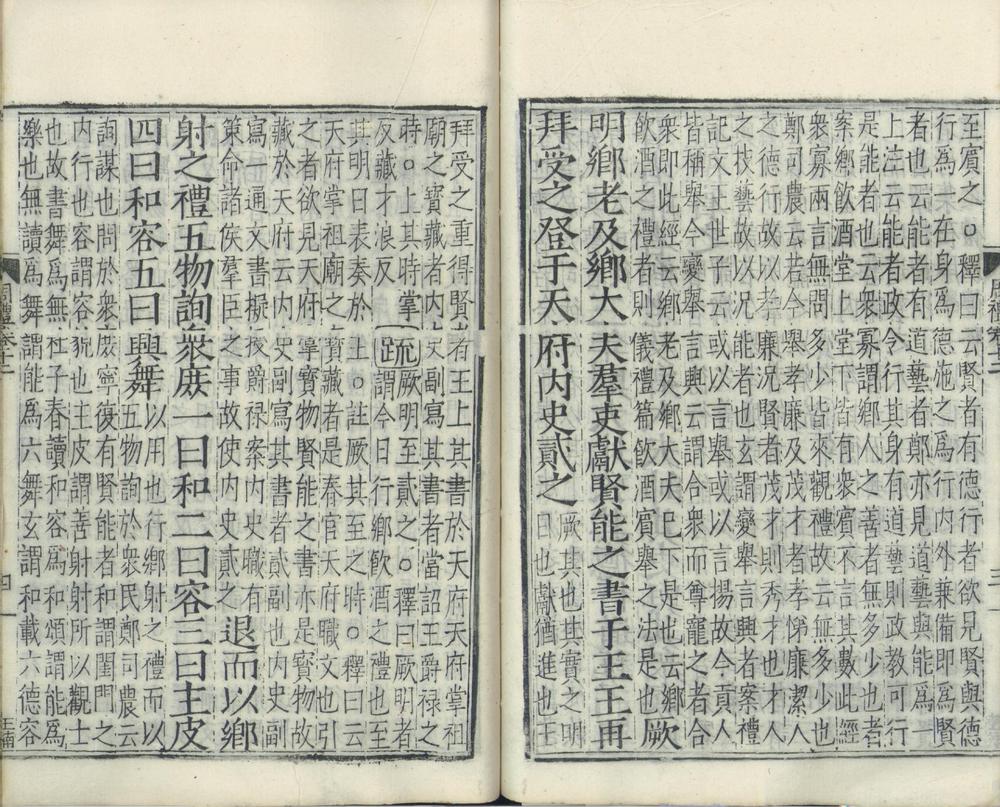 至賓之○釋曰云賢者有德行者欲見賢與德
行爲一在身爲德施之爲行内外兼備即爲賢
者也云能者有道藝者鄭亦見道藝與能爲一
上注云能者政令行其身有道藝則政教可行
是能者也云衆寡謂鄉人之善者無多少也者
案鄉飲酒堂上堂下皆有衆賓不言其數此經
衆寡兩言無問多少皆來觀禮故云無多少也
鄭司農云若今舉孝廉及茂才者孝悌廉潔人
之德行故以孝廉況賢者茂才則秀才也才人
之技藝故以況能者也玄謂變舉言興者案禮
記文王世子云或以言舉或以言揚故今貢人
皆稱舉今變舉言興云謂合衆而尊寵之者合
衆即此經云鄉老及鄉大夫巳下是也云鄉
飲酒之禮者則儀禮篇飲酒賓舉之法是也厥
明鄉老及鄉大夫羣吏獻賢能之書于王王再
拜受之登于天府内史貳之厥其也其賓之明日也獻猶進也王
拜受之重得賢者王上其書於天府天府掌祖
廟之寶藏者内史副寫其書者當詔王爵禄之
時○上其時掌反藏才浪反疏厥明至貳之○釋曰厥明者
謂今日行鄉飲酒之禮也至
其明日表奏於王○註厥其至之時○釋曰云
天府掌祖廟之寶藏者是春官天府職文也引
之者欲見天府掌寶物賢能之書亦是寶物故
藏於天府云内史副寫其書者貳副也内史副
寫一通文書擬授爵禄案内史職有
策命諸侯羣臣之事故使内史貳之退而以鄉
射之禮五物詢衆庶一曰和二曰容三曰主皮
四曰和容五曰興舞以用也行鄉射之禮而以五物詢於衆民鄭司農云
詢謀也問於衆庶寧復有賢能者和謂閨門之
内行也容謂容貌也主皮謂善射射所以觀士
也故書舞爲無杜子春讀和容爲和頌謂能爲
樂也無讀爲舞謂能爲六舞玄謂和載六德容